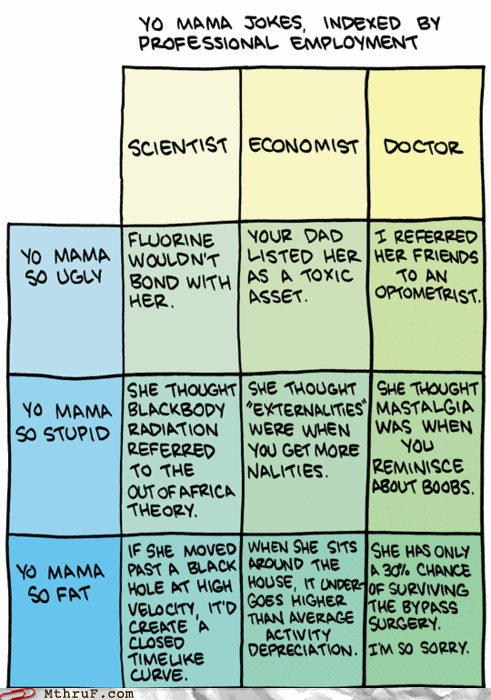 YO MAMA JOKES, INDEXED BY
PROFESSIONAL EMPLOYMENT
SCIENTIST
ECONOMIST
DOCTOR
YO MAMA
SO UGLY
FLUORINE
WOULDN'T
BOND WITH
HER.
YOUR DAD
LISTED HER
AS A TOXIC
ASSET.
I REFERRED
HER FRIENDS
TO AN
OPTOMETRIST.
YO MAMA
SO STUPID
SHE THOUGHT
BLACKBODY
RADIATION
REFERRED
TO THE
OUT OF AFRICA
THEORY.
SHE THOUGHT
"EXTERNALITIES"
WERE WHEN
YOU GET MORE
NALITIES.
SHE THOUGHT
MASTALGIA
WAS WHEN
YOU
REMINISCE
ABOUT BOOBS.
YO MAMA
SO FAT
IF SHE MOVED
PAST A BLACK
HOLE AT HIGH
VELOCITY, IT'D
CREATE A
CLOSED
TIMELIKE
CURVE.
WHEN SHE SITS
AROUND THE
HOUSE, IT UNDER-
GOES HIGHER
THAN AVERAGE
ACTIVITY
DEPRECIATION.
SHE HAS ONLY
A 30% CHANCE
OF SURVIVING
THE BYPASS
SURGERY.
I'M SO SORRY.
MThruF.com